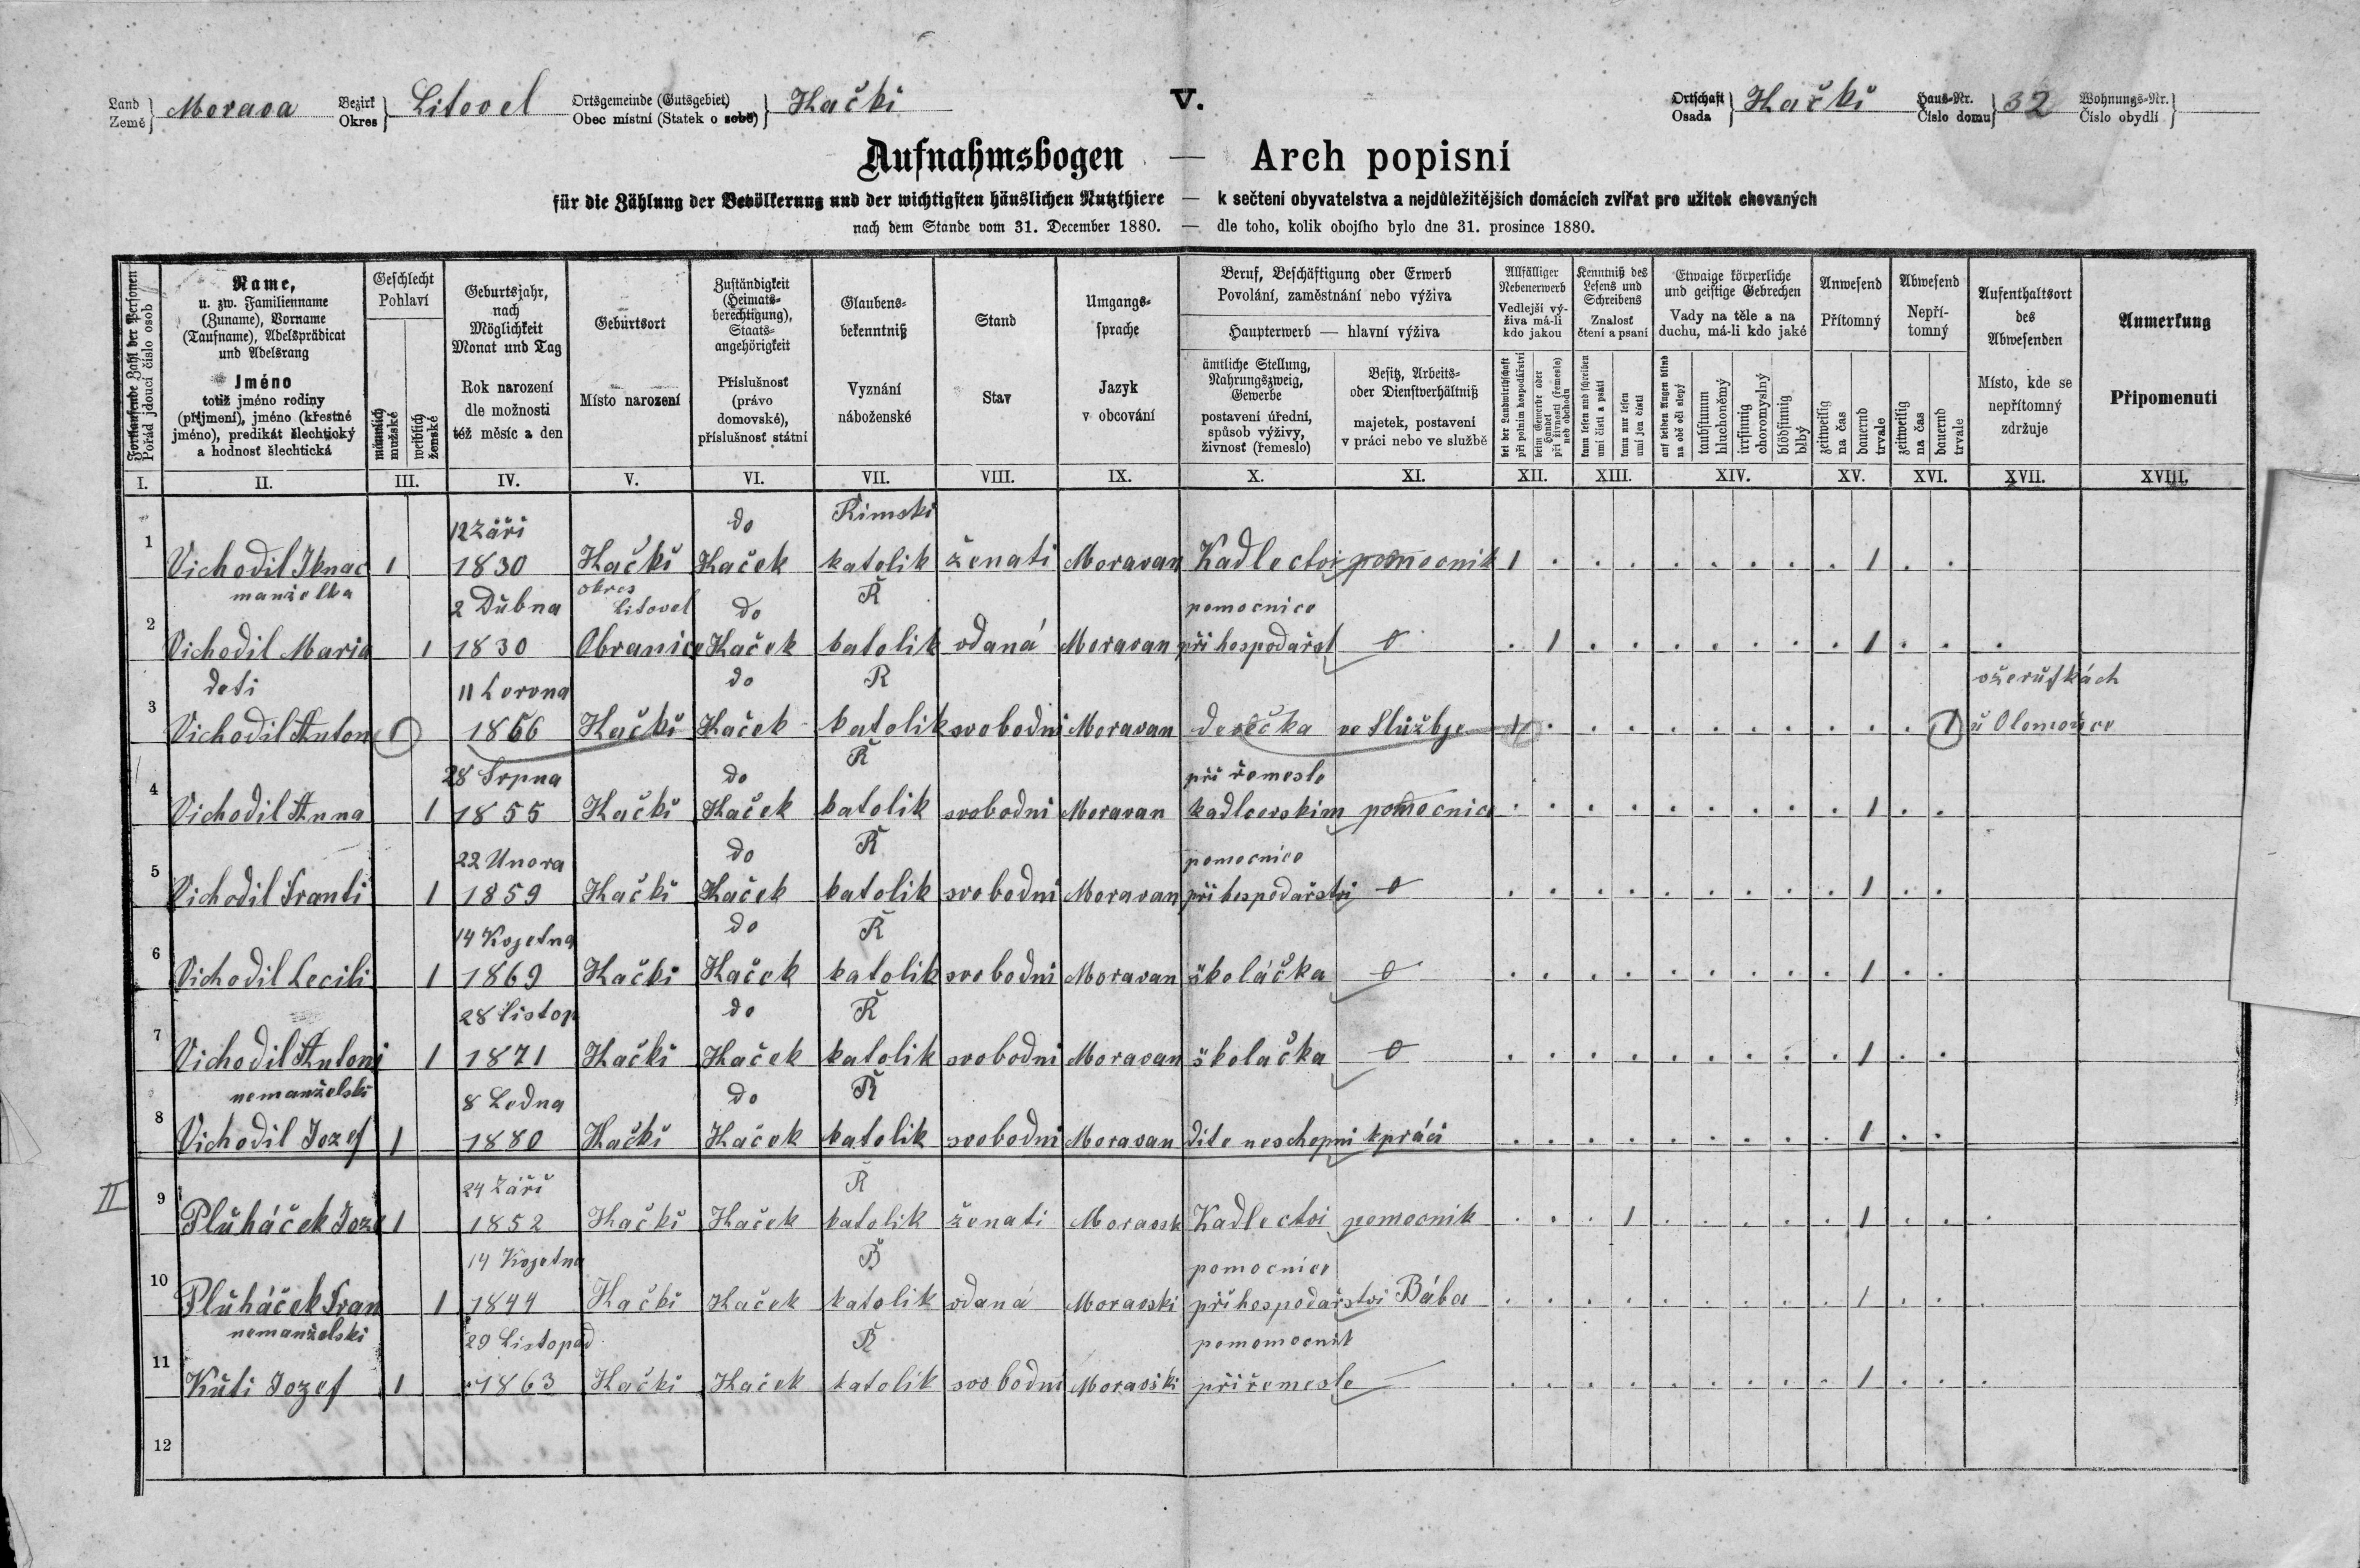 Land Země } Morava Bezirk Okres } Litovel Ortsgemeinde (Gutsgebiet) Obec místní (Statek o sobě) } Hački V. Ortschaft Osada } Hački Haus-Nr. Číslo domu } 32 Wohnungs-Nr. Číslo obydlí }
Aufnahmsbogen — Arch popisní
für die Zählung der Bevölkerung und der wichtigsten häuslichen Nutzthiere — k sečtení obyvatelstva a nejdůležitějších domácích zvířat pro užitek chovaných
nach dem Stande vom 31. December 1880. — dle toho, kolik obojího bylo dne 31. prosince 1880.
Fortlaufende Zahl der Personen
Pořád jdoucí číslo osob
Name,
u. zw. Familienname
(Zuname), Vorname
(Taufname), Adelsprädicat
und Adelsrang
Jméno
totiž jméno rodiny
(příjmení), jméno (křestné
jméno), predikát šlechtický
a hodnost šlechtická
Geschlecht
Pohlaví
männlich
mužské
weiblich
ženské
Geburtsjahr,
nach
Möglichkeit
Monat und Tag
Rok narození
dle možnosti
též měsíc a den
Geburtsort
Místo narození
Zuständigkeit
(Heimats-
berechtigung),
Staats-
angehörigkeit
Příslušnosť
(právo
domovské),
příslušnosť státní
Glaubens-
bekenntniß
Vyznání
náboženské
Stand
Stav
Umgangs-
sprache
Jazyk
v obcování
Beruf, Beschäftigung oder Erwerb
Povolání, zaměstnání nebo výživa
Haupterwerb — hlavní výživa
ämtliche Stellung,
Nahrungszweig,
Gewerbe
postavení úřední,
spůsob výživy,
živnosť (řemeslo)
Besitz, Arbeits-
oder Dienstverhältniß
majetek, postavení
v práci nebo ve službě
Allfälliger
Nebenerwerb
Vedlejší vý-
živa má-li
kdo jakou
bei der Landwirthschaft
při polním hospodářství
beim Gewerbe oder
Handel
při živnosti (řemesle)
neb obchodu
Kenntniß des
Lesens und
Schreibens
Znalosť
čtení a psaní
kann lesen und schreiben
umí čísti a psáti
kann nur lesen
umí jen čísti
Etwaige körperliche
und geistige Gebrechen
Vady na těle a na
duchu, má-li kdo jaké
auf beiden Augen blind
na obě oči slepý
taubstumm
hluchoněmý
irrsinnig
choromyslný
blödsinnig
blbý
Anwesend
Přítomný
zeitweilig
na čas
dauernd
trvale
Abwesend
Nepří-
tomný
zeitweilig
na čas
dauernd
trvale
Aufenthaltsort
des
Abwesenden
Místo, kde se
nepřítomný
zdržuje
Anmerkung
Připomenutí
I. II. III. IV. V. VI. VII. VIII. IX. X. XI. XII. XIII. XIV. XV. XVI. XVII. XVIII.
12 Záři do Řimski
1 Vichodil Ihnac 1 1830 Hački Haček katolik ženati Moravan Kadlectvi pomocnik 1 1
manželka 2 Dubna okres Litovel do Ř pomocnice
2 Vichodil Maria 1 1830 Obranice Haček katolik vdaná Moravan při hospodařst 0 1 1
deti 11 do R
3 Vichodil Anton 1 1866 Hački Haček katolik svobodni Moravan ve Službje 1 1 u Olomouce
28 Srpna do Ř při řemesle
4 Vichodil Anna 1 1855 Hački Haček katolik svobodni Moravan kadlcovskim pomocnice 1
22 Unora do Ř pomocnice
5 Vichodil Franti 1 1859 Hački Haček katolik svobodni Moravan při hospodařstvi 0 1
14 Kvjetna do Ř
6 Vichodil Cecili 1 1869 Hački Haček katolik svobodni Moravan školáčka 0 1
28 Listop do Ř
7 Vichodil Antoni 1 1871 Hački Haček katolik svobodni Moravan školačka 0 1
nemanželski 8 Ledna do Ř
8 Vichodil Jozef 1 1880 Hački Haček katolik svobodni Moravan dite neschopni kpráci 1
24 Záři Ř
II 9 Pluháček Joze 1 1852 Hački Haček katolik ženati Moravsk Kadlectvi pomocnik 1 1
14 Kvjetna Ř pomocnice
10 Pluháček Fran 1 1844 Hački Haček katolik vdaná Moravski při hospodařstvi Bába 1
nemanželski 29 Listopad Ř pomomocnik
11 Kuti Jozef 1 1863 Hački Haček katolik svobodni Moravski při řemesle 1
12